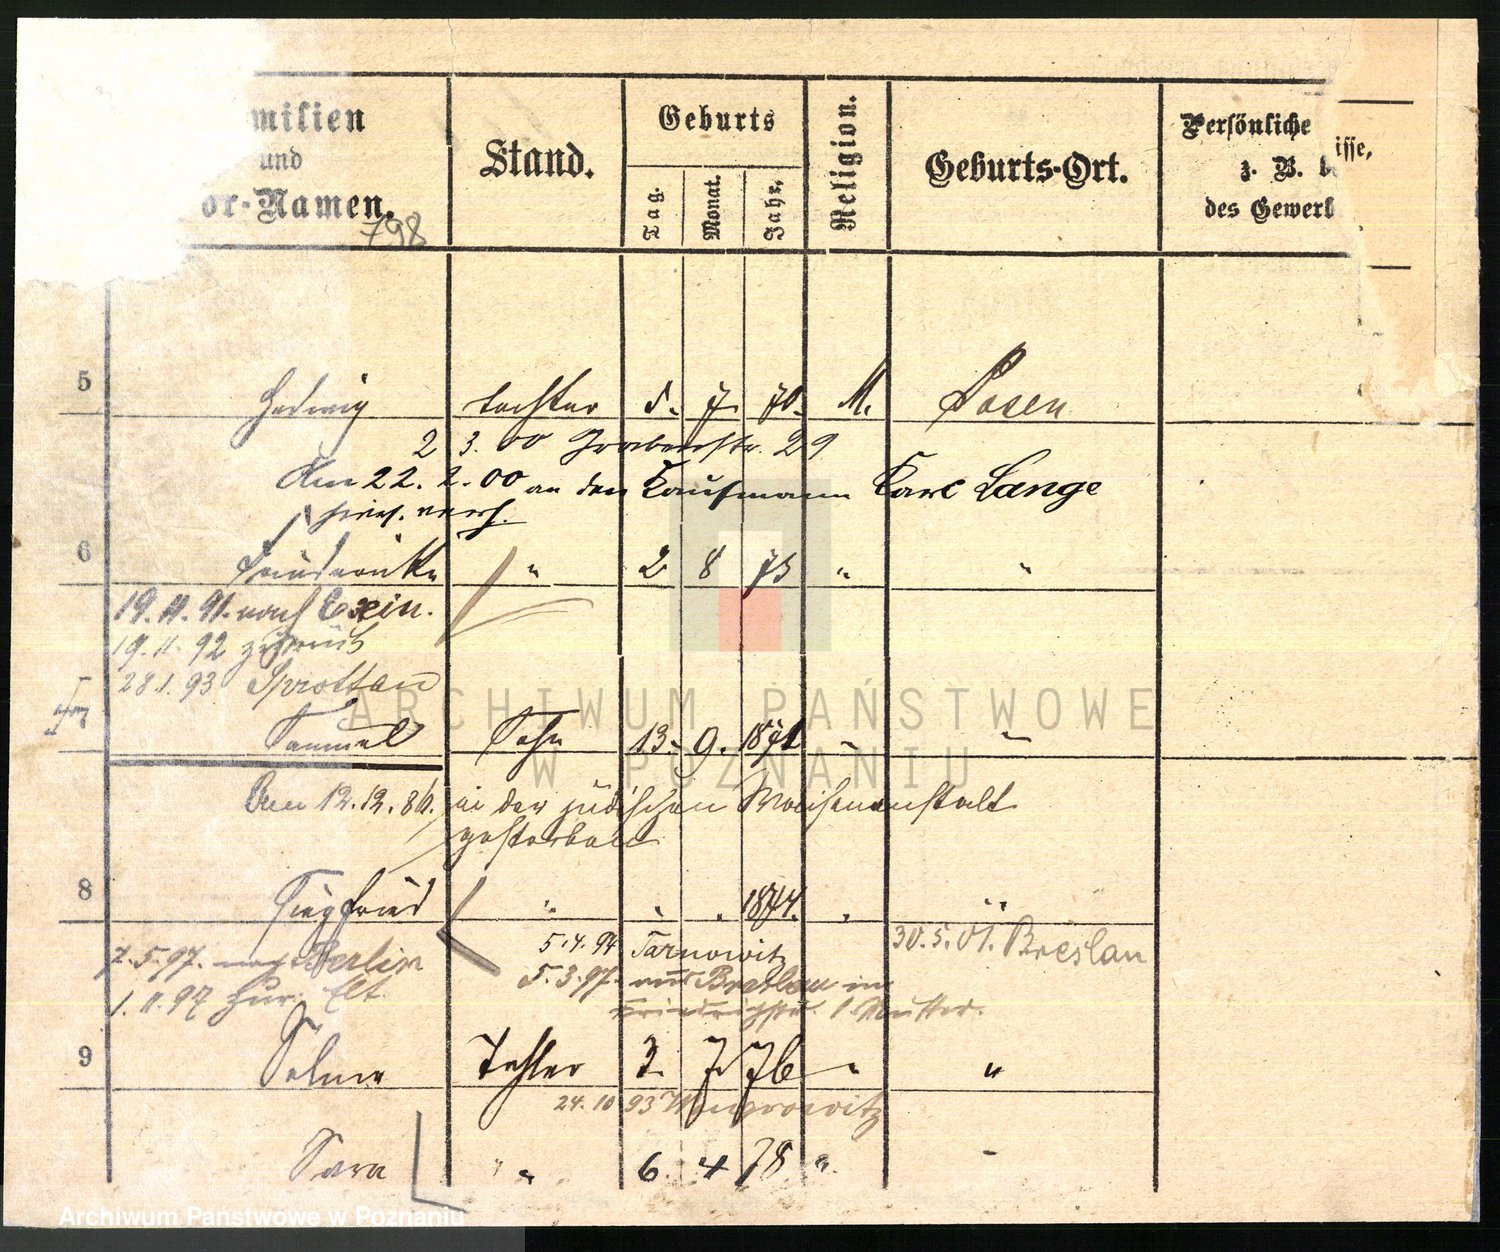 milien
und
or-Namen.
798
Stand.
Geburts
Tag.
Monat.
Jahr.
Religion.
Geburts-Ort.
Persönliche
isse,
z. B. b
des Gewerb
5 Hedwig Tochter 5. 7. 70. M. Posen
2 3. 00 Grabenstr. 29
Am 22. 2. 00 an den Kaufmann Karl Lange
hies. verh.
6 Friederike " 2 8 73 " "
19. 11. 91. nach Exin.
19. 11. 92 zurück
28 1. 93 Sprottau
Samuel Sohn 13. 9. 1871 " "
Am 12. 12. 86. in der jüdischen Waisenanstalt
gestorben
8 Siegfried " " " 1874. " "
5. 4. 94 Tarnowitz
30. 5. 01. Breslau
7. 5. 97. nach Berlin
5. 3. 97. aus Breslau in
1. 11. 97 zur. Elt.
Friedrichstr. 1 Mutter.
9 Selma Tochter 3. 7. 76 " "
24. 10 93 Wongrowitz
Sara " " 6. 4 78 " "
ARCHIWUM PAŃSTWOWE
W POZNANIU
Archiwum Państwowe w Poznaniu